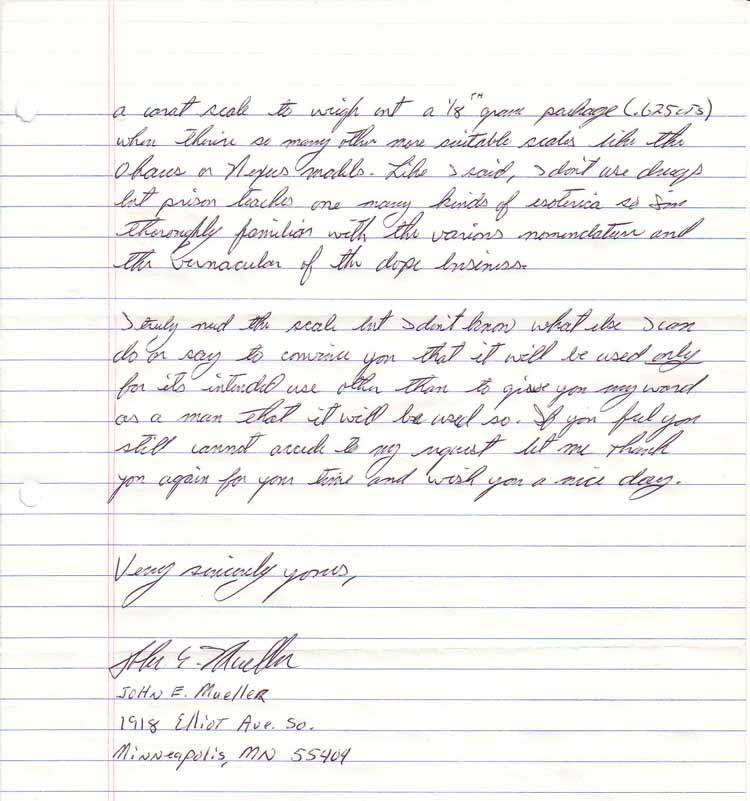 a carat scale to weigh out a 1/8TH gram package (.625cts)
when there're so many other more suitable scales like the
Ohaus or Nexus models. Like I said, I don't use drugs
but prison teaches one many kinds of esoterica so I'm
thoroughly familiar with the various nomenclature and
the vernacular of the dope business.
I truly need the scale but I don't know what else I can
do or say to convince you that it will be used only
for its intended use other than to give you my word
as a man that it will be used so. If you feel you
still cannot accede to my request let me thank
you again for your time and wish you a nice day.
Very sincerely yours,
John E. Mueller
JOHN E. MuelleR
1918 Elliot Ave. So.
Minneapolis, MN 55404